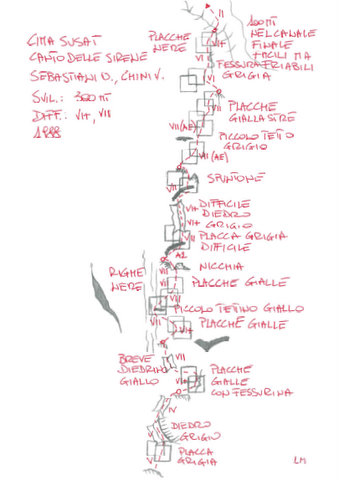 CIMA SUSAT
CANTO DELLE SIRENE
SEBASTIANI D., CHINI V.
SVIL.: 360 m
DIFF.: VI+, VII
1988
II
100 m
NEL CANALE
FINALE
FACILI MA
FRIABILI
PLACCHE
NERE
VI+
VI
FESSURA
GRIGIA
VII
PLACCHE
GIALLASTRE
VII (AE)
PICCOLO TETTO
GRIGIO
VII (AE)
VII
SPUNTONE
DIFFICILE
DIEDRO
GRIGIO
VI+
VI+
VII
PLACCA GRIGIA
DIFFICILE
A2
NICCHIA
RIGHE
NERE
VII
PLACCHE GIALLE
VII
PICCOLO TETTINO GIALLO
VII
VI+
PLACCHE GIALLE
BREVE
DIEDRINO
GIALLO
VII
VII
PLACCHE
GIALLE
CON FESSURINA
IV
DIEDRO
GRIGIO
V
PLACCA
GRIGIA
LM